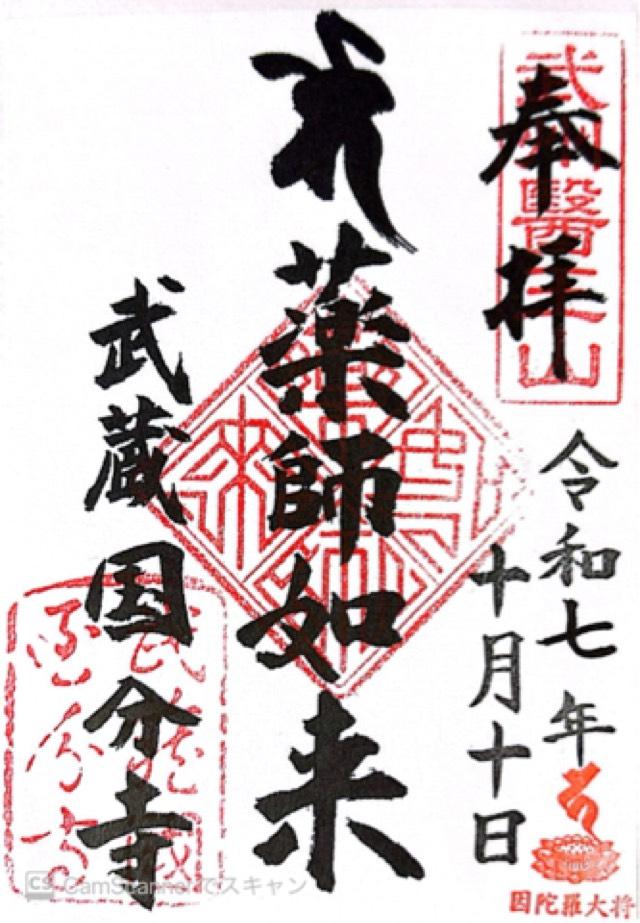 奉拝
武州醫王山
令和七年
十月十日
因陀羅大将
薬師如来
武蔵国分寺
CS CamScannerでスキャン